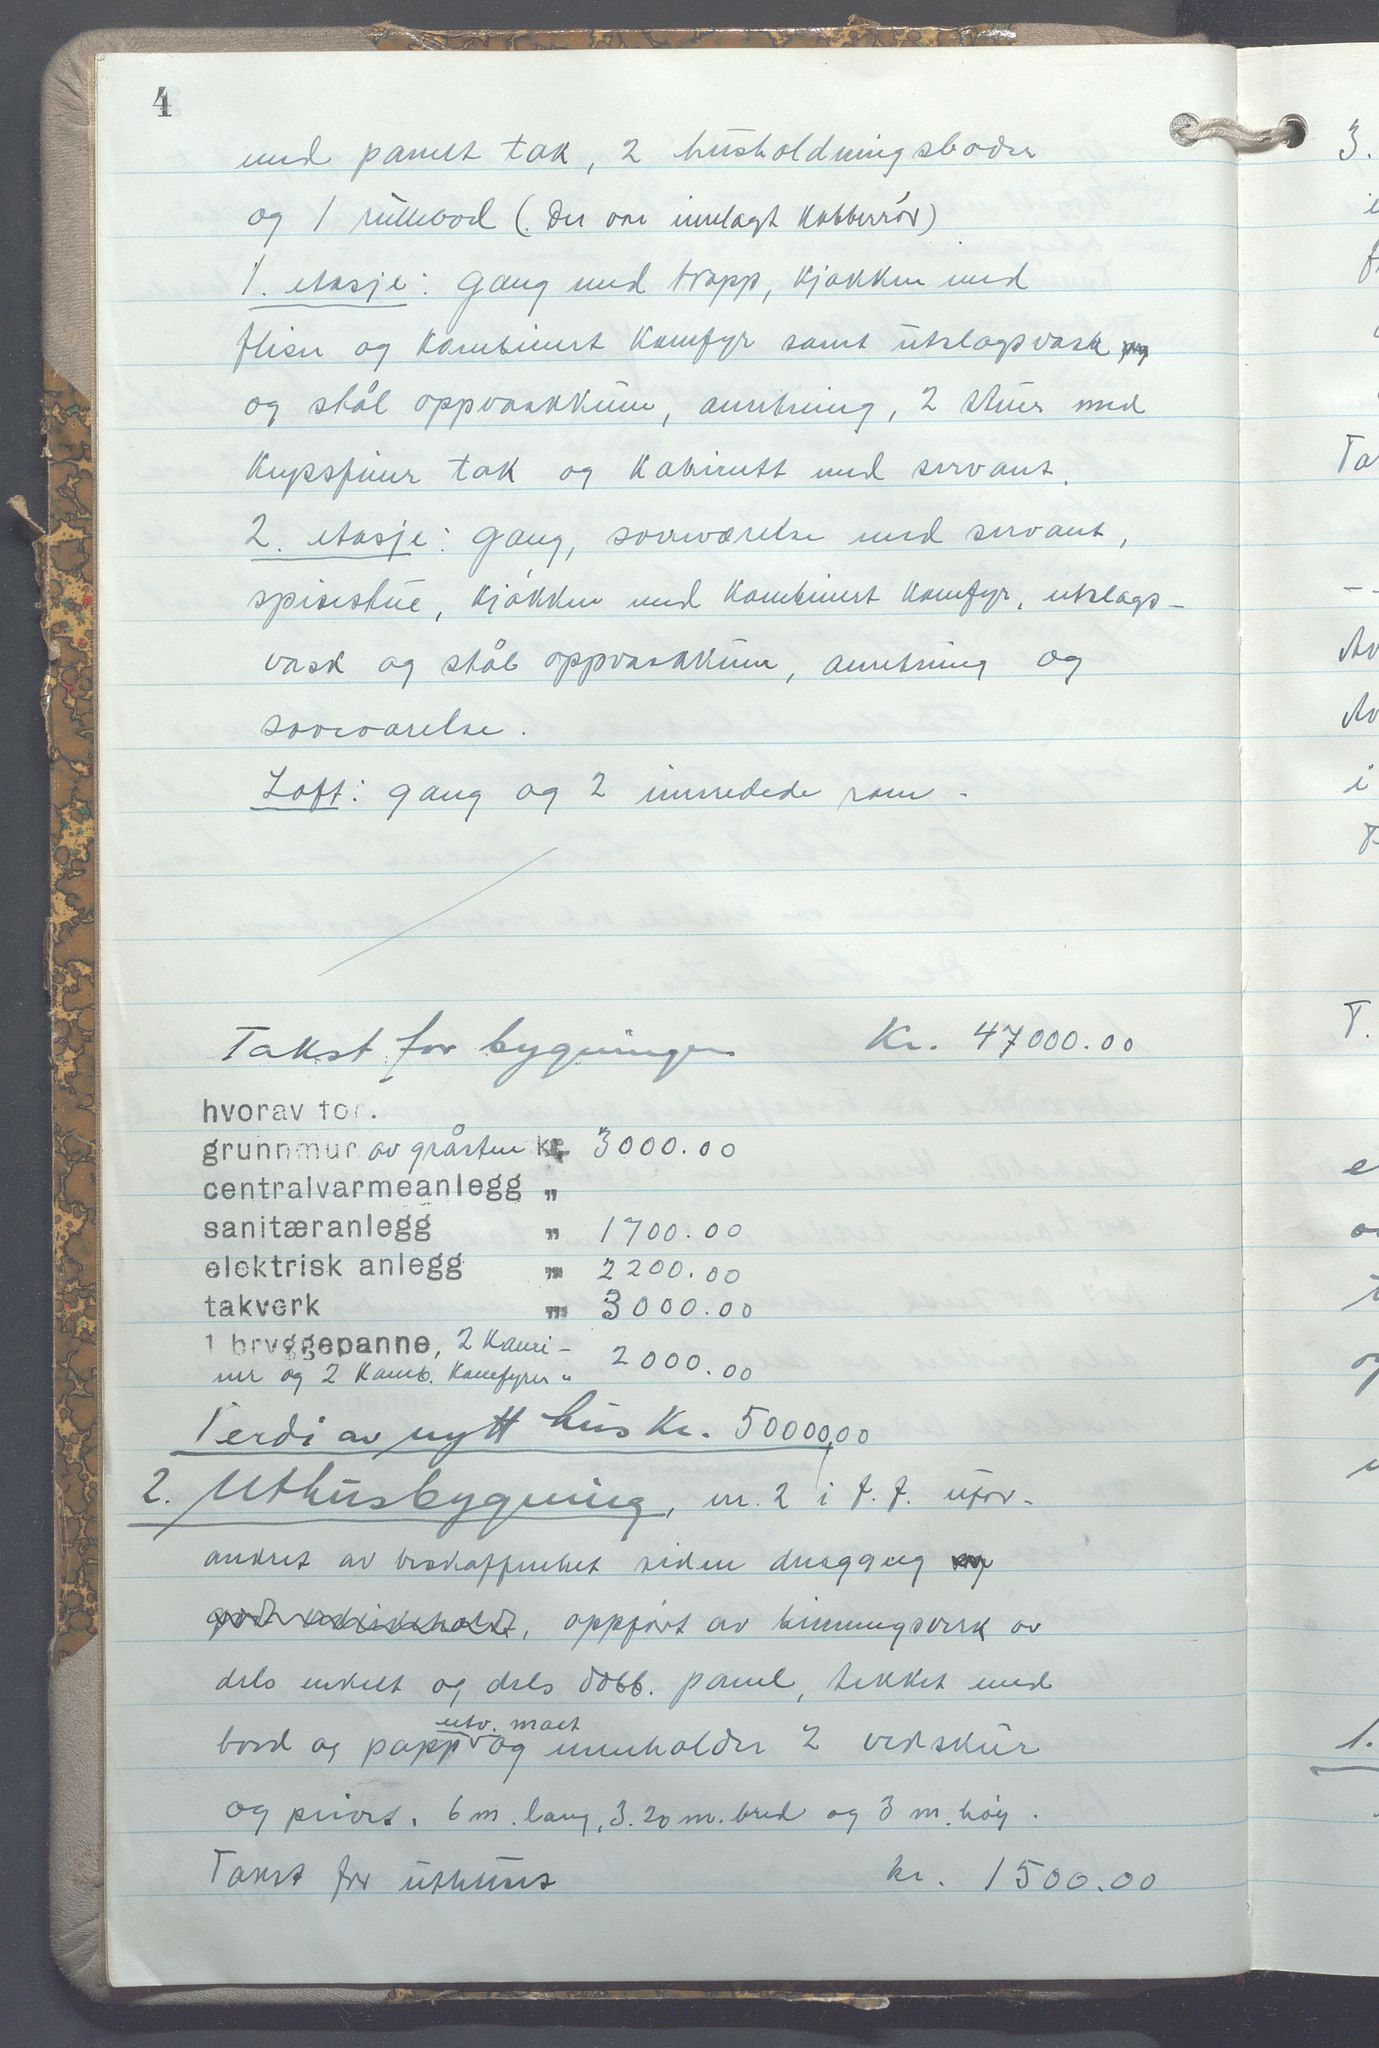 4
med panelt tak, 2 husholdningsboder
og 1 rullebod (Der var innlagt Kobberrör)
1. etasje: gang med trapp, kjøkken med
fliser og kombinert komfyr samt utslagsvask
og stål oppvaskkum, anretning, 2 stuer med
tak og kabinett med servant.
2. etasje: gang, soveværelse med servant,
spisestue, kjøkken med kombinert komfyr, utslags-
vask og stål oppvaskkum, anretning og
soveværelse.
Loft: gang og 2 innredede rom -
Takst for bygningen Kr. 47000.00
hvorav for.
grunnmur av gråsten kr. 3000.00
centralvarmeanlegg „
sanitæranlegg „ 1700.00
elektrisk anlegg „ 2200.00
takverk „ 3000.00
1 bryggepanne, 2 Kami-
ner og 2 Komb. Komfyrer " 2000.00
Verdi av nytt hus Kr. 50000,00
2. Uthusbygning, nr. 2 i f.f. ufor-
andret av beskaffenhet siden dengang
godt vedlikeholdt, oppført av binningsverk av
dels enkelt og dels dobb. panel, tekket med
utv. malt
bord og papp og inneholder 2 vedskur
og privet. 6 m. lang, 3.20 m. bred og 3 m. høy.
Takst for uthuset kr. 1500.00
3.
Ta
Av
Av
i
T.
1.